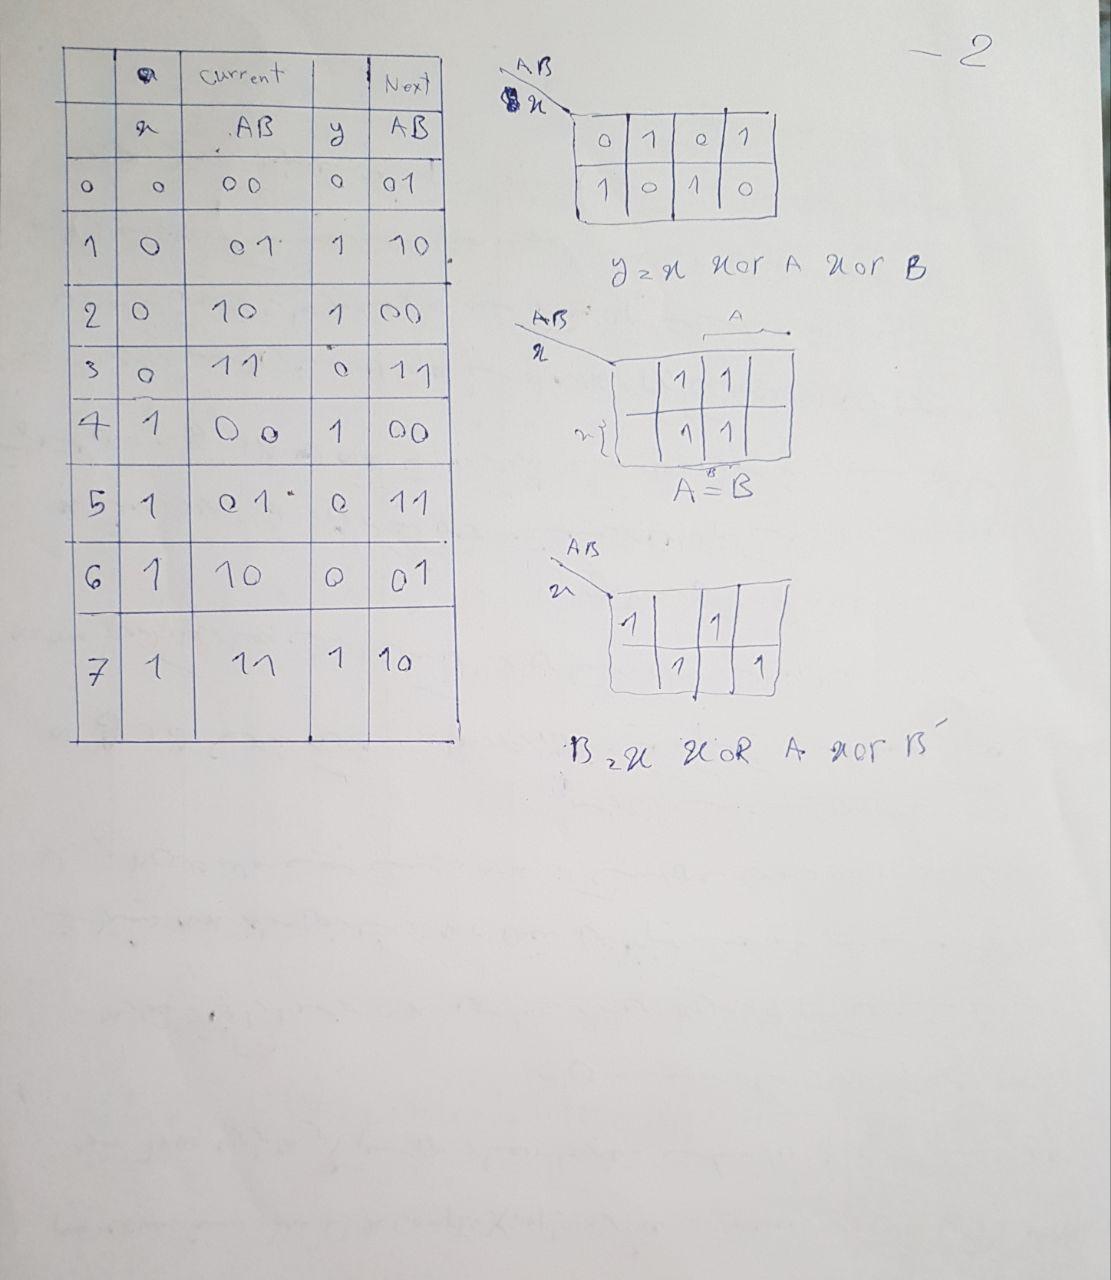 - 2
x current Next
x AB y AB
0 0 00 0 01
1 0 01 1 10
2 0 10 1 00
3 0 11 0 11
4 1 00 1 00
5 1 01 0 11
6 1 10 0 01
7 1 11 1 10
AB
x
0 1 0 1
1 0 1 0
y = x xor A xor B
AB
x
A
1 1
x{ 1 1
B
A = B
AB
x
1 1
1 1
B = x xOR A xor B'